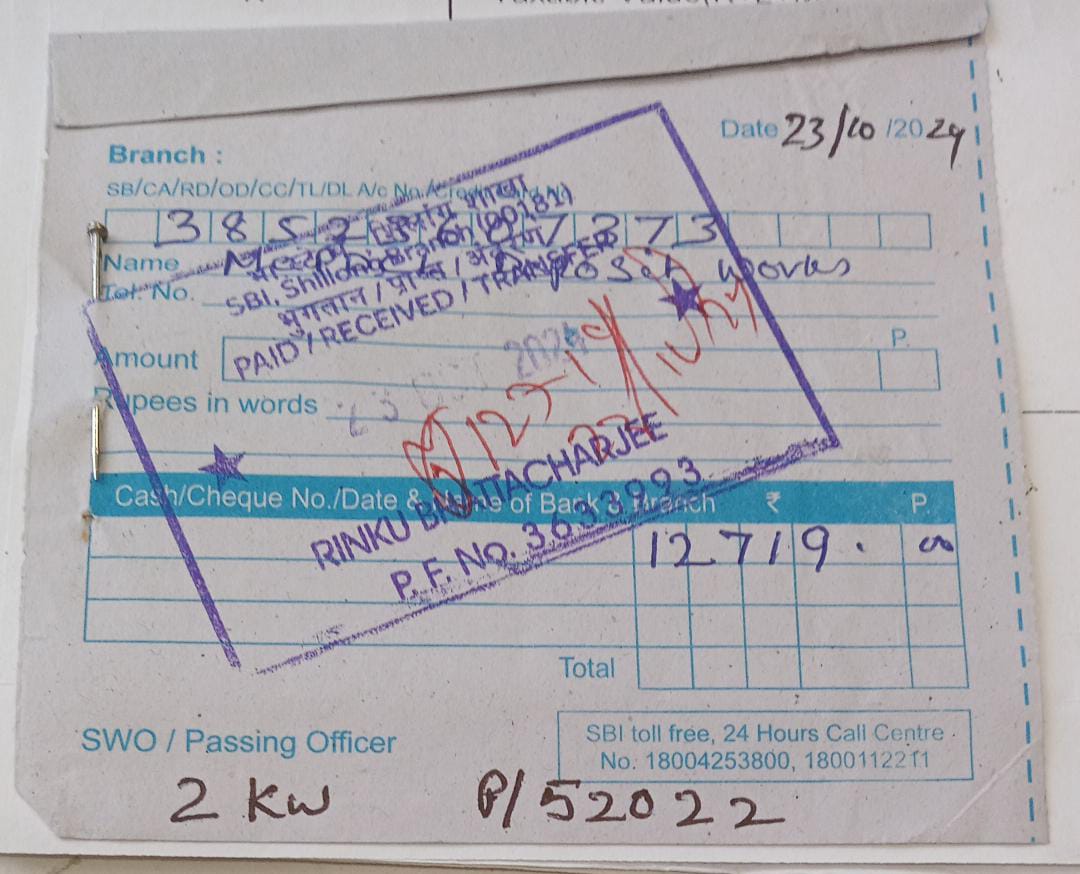 Date 23/10/2024
Branch :
SB/CA/RD/OD/CC/TL/DL A/c No./Credit Card No.
3 8 5 2 7 3 7 3
शिलांग शाखा
SBI, Shillong Branch (00181)
Name Deposit works
Tel. No.
भुगतान / प्राप्त / अंतरण
PAID / RECEIVED / TRANSFERS
Amount P.
23 OCT 2024
12719
Rupees in words
RINKU BHATTACHARJEE
P.F. No. 3633993
Cash/Cheque No./Date & Name of Bank & Branch ₹ P.
12719. 00
Total
SWO / Passing Officer
SBI toll free, 24 Hours Call Centre
No. 18004253800, 1800112211
2 KW P/52022